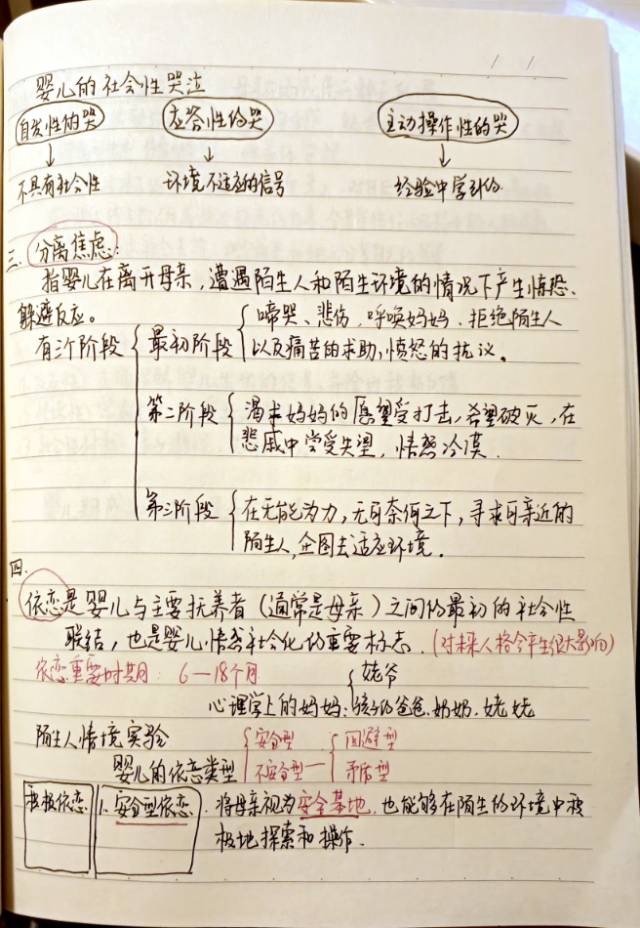 婴儿的社会性哭泣
自发性的哭 应答性的哭 主动操作性的哭
不具有社会性 环境不适应的信号 经验中学到的
三. 分离焦虑:
指婴儿在离开母亲,遭遇陌生人和陌生环境的情况下产生惊恐、
躲避反应。
有三个阶段 最初阶段 啼哭、悲伤、呼唤妈妈、拒绝陌生人
以及痛苦的求助,愤怒的抗议。
第二阶段 渴求妈妈的愿望受打击,希望破灭,在
悲戚中尝受失望,情感冷漠.
第三阶段 在无能为力,无可奈何之下,寻求可亲近的
陌生人,企图去适应环境.
四.
依恋是婴儿与主要抚养者(通常是母亲)之间的最初的社会性
联结,也是婴儿情感社会化的重要标志.(对未来人格今年生很大影响)
依恋重要时期: 6—18个月
心理学上的妈妈: 姥爷
孩子的爸爸.奶奶.姥姥
陌生人情境实验
婴儿的依恋类型 安全型 回避型
不安全型— 矛盾型
积极依恋 1. 安全型依恋. 将母亲视为安全基地,也能够在陌生的环境中积
极地探索和操作.